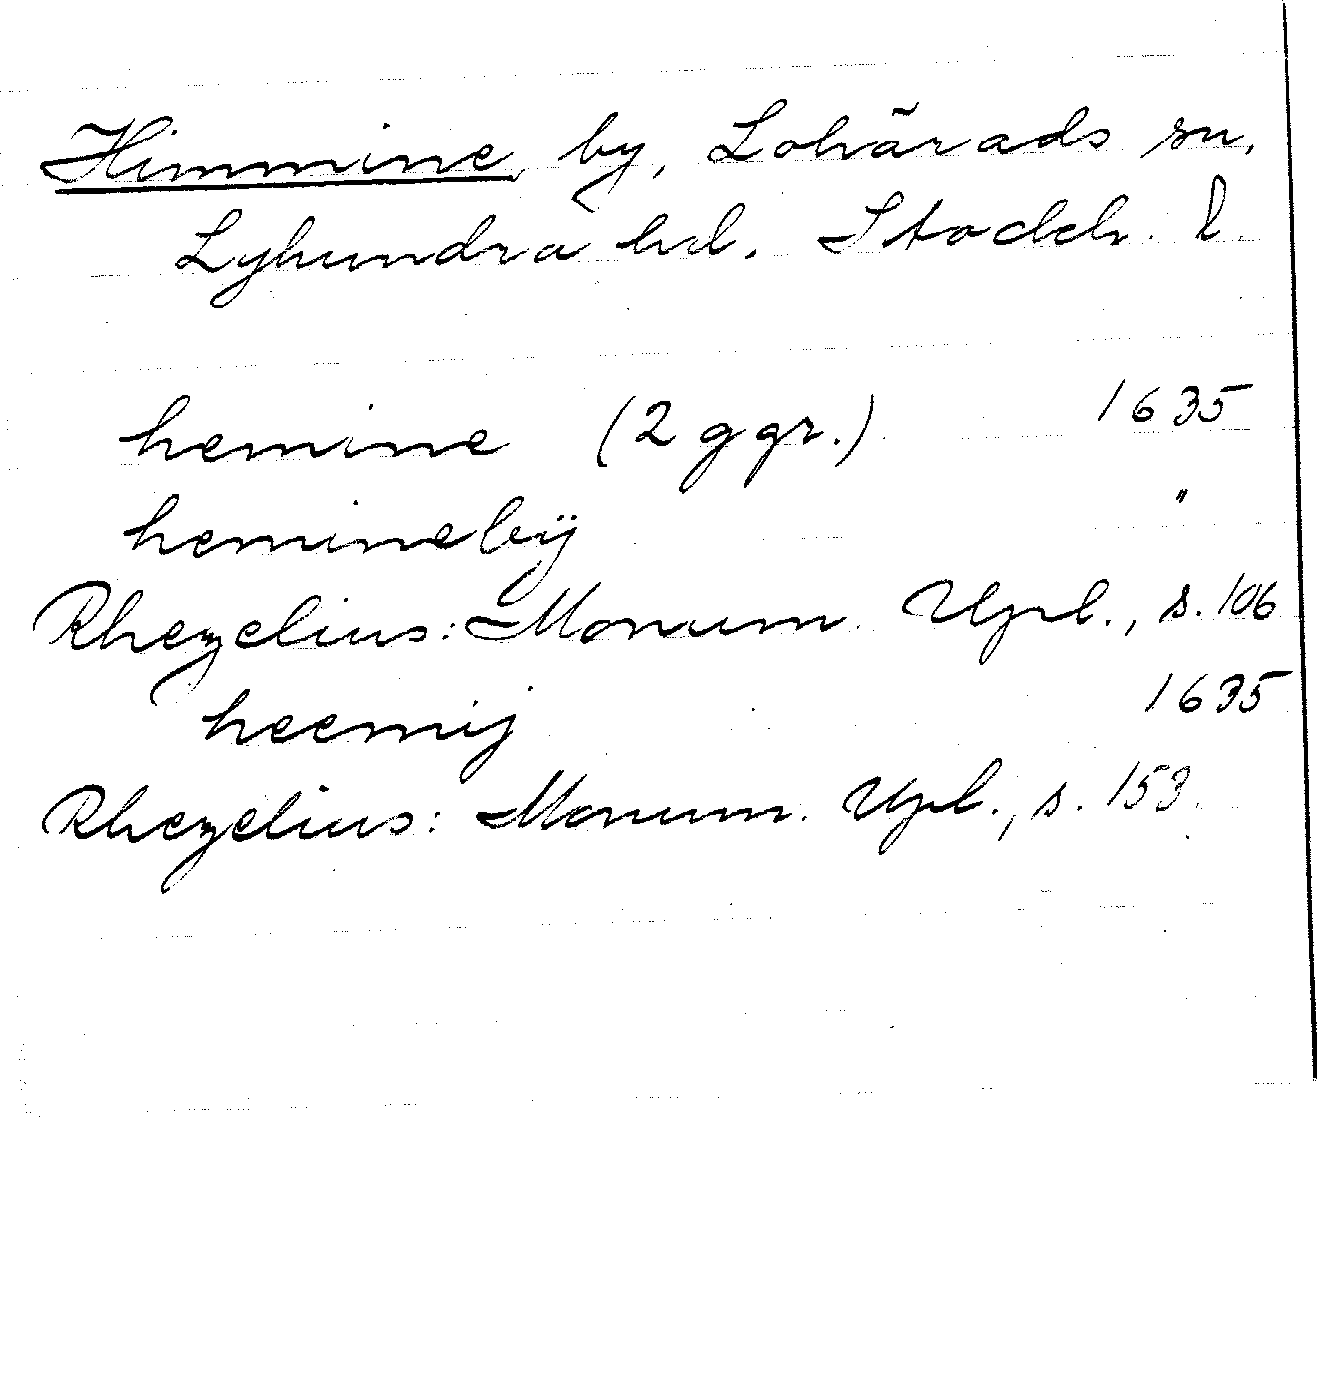 Himmine by, Lohärads sn,
Lyhundra hd. Stockh. l.
hemine (2 ggr.) 1635
heminebÿ "
Rhezelius: Monum. Upl., s. 106
heemij 1635
Rhezelius: Monum. Upl., s. 153.